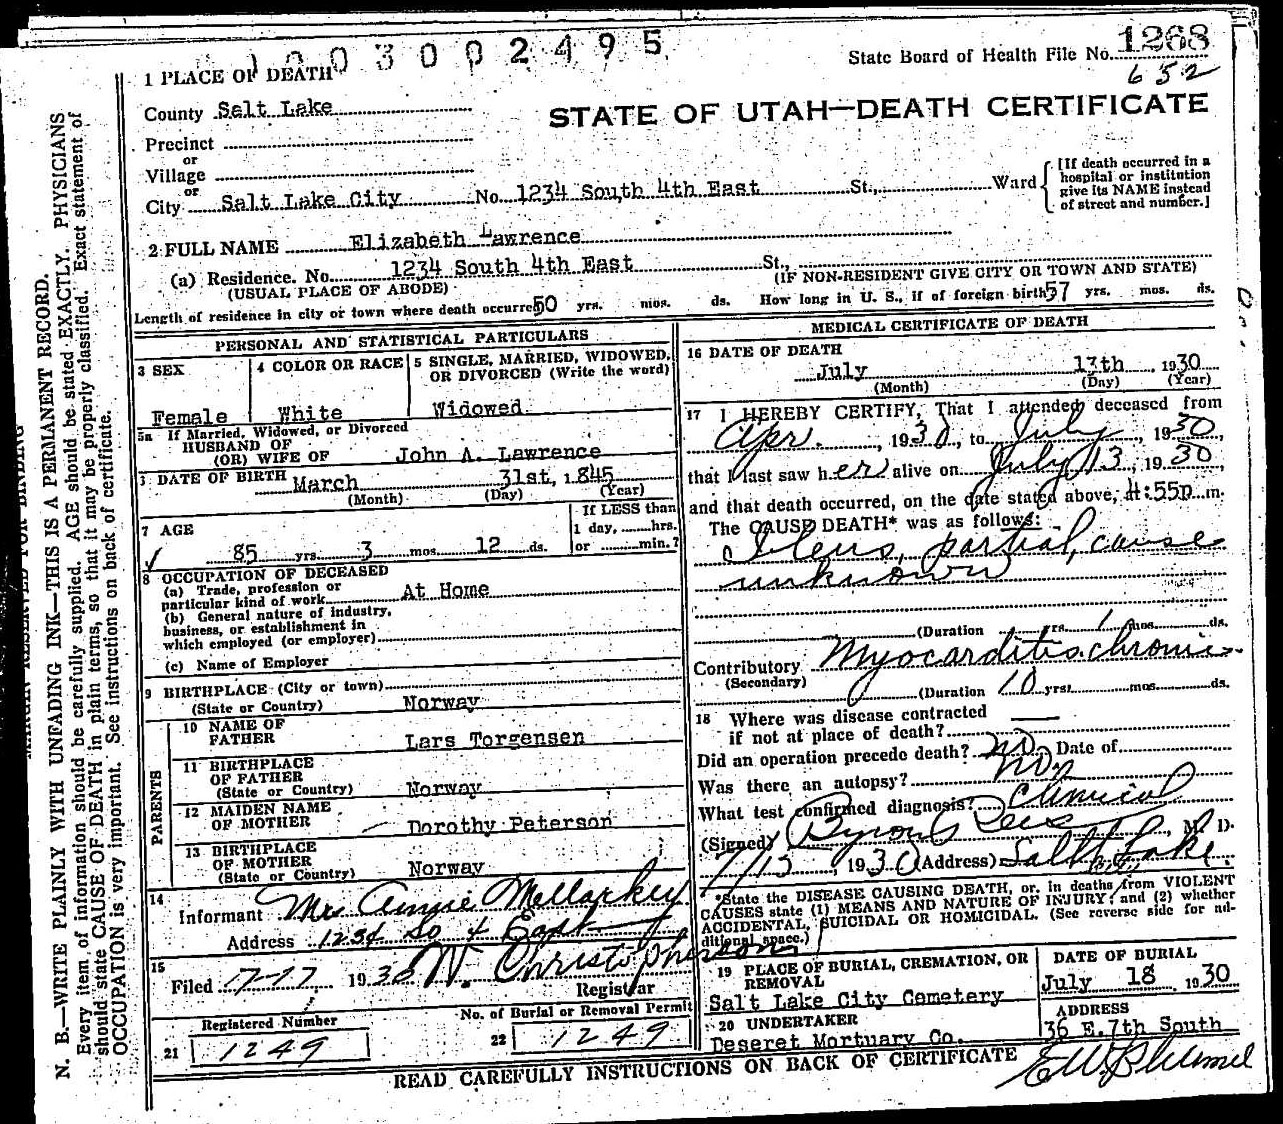 1003002495
State Board of Health File No. 1268
652
1 PLACE OF DEATH
County Salt Lake
STATE OF UTAH—DEATH CERTIFICATE
Precinct
or
Village
or
City Salt Lake City No. 1234 South 4th East St., Ward
[If death occurred in a
hospital or institution
give its NAME instead
of street and number.]
2 FULL NAME Elizabeth Lawrence
(a) Residence. No. 1234 South 4th East St.,
(USUAL PLACE OF ABODE) (IF NON-RESIDENT GIVE CITY OR TOWN AND STATE)
Length of residence in city or town where death occurred 50 yrs. mos. ds. How long in U. S., if of foreign birth 57 yrs. mos. ds.
PERSONAL AND STATISTICAL PARTICULARS
3 SEX
Female
4 COLOR OR RACE
White
5 SINGLE, MARRIED, WIDOWED,
OR DIVORCED (Write the word)
Widowed
5a If Married, Widowed, or Divorced
HUSBAND OF
(OR) WIFE OF John A. Lawrence
DATE OF BIRTH March 31st, 1845
(Month) (Day) (Year)
7 AGE
85 yrs. 3 mos. 12 ds.
If LESS than
1 day, hrs.
or min.?
8 OCCUPATION OF DECEASED
(a) Trade, profession or
particular kind of work At Home
(b) General nature of industry,
business, or establishment in
which employed (or employer)
(c) Name of Employer
9 BIRTHPLACE (City or town)
(State or Country) Norway
PARENTS
10 NAME OF
FATHER Lars Torgensen
11 BIRTHPLACE
OF FATHER
(State or Country) Norway
12 MAIDEN NAME
OF MOTHER Dorothy Peterson
13 BIRTHPLACE
OF MOTHER
(State or Country) Norway
14
Informant Mrs Annie Mellarkey
Address 1234 So 4 East
15
Filed 7-17 1930 W. Christopherson
Registrar
Registered Number
21 1249
No. of Burial or Removal Permit
22 1249
MEDICAL CERTIFICATE OF DEATH
16 DATE OF DEATH
July 13th 1930
(Month) (Day) (Year)
17 I HEREBY CERTIFY, That I attended deceased from
Apr. , 1930, to July , 1930,
that I last saw her alive on July 13, 1930,
and that death occurred, on the date stated above, 4:55p m.
The CAUSE DEATH* was as follows:
Ileus, partial, cause
unknown
(Duration yrs. 1 mos. ds.
Contributory Myocarditis chronic
(Secondary)
(Duration 10 yrs. mos. ds.
18 Where was disease contracted
if not at place of death? —
Did an operation precede death? no Date of
Was there an autopsy? no
What test confirmed diagnosis? Clinical
(Signed) Byron Rees , M. D.
7/15, 1930 (Address) Salt Lake
*State the DISEASE CAUSING DEATH, or, in deaths from VIOLENT
CAUSES state (1) MEANS AND NATURE OF INJURY; and (2) whether
ACCIDENTAL, SUICIDAL OR HOMICIDAL. (See reverse side for ad-
ditional space.)
19 PLACE OF BURIAL, CREMATION, OR
REMOVAL
Salt Lake City Cemetery
DATE OF BURIAL
July 18 1930
20 UNDERTAKER
Deseret Mortuary Co.
ADDRESS
36 E. 7th South
READ CAREFULLY INSTRUCTIONS ON BACK OF CERTIFICATE
MARGIN RESERVED FOR BINDING
N. B.—WRITE PLAINLY WITH UNFADING INK—THIS IS A PERMANENT RECORD.
Every item of information should be carefully supplied. AGE should be stated EXACTLY. PHYSICIANS
should state CAUSE OF DEATH in plain terms, so that it may be properly classified. Exact statement of
OCCUPATION is very important. See instructions on back of certificate.